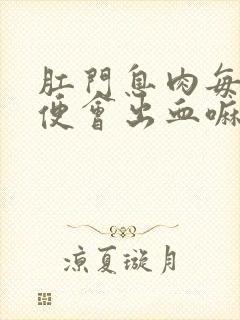 肛門息肉每
便會出血嘛
涼夏璇月